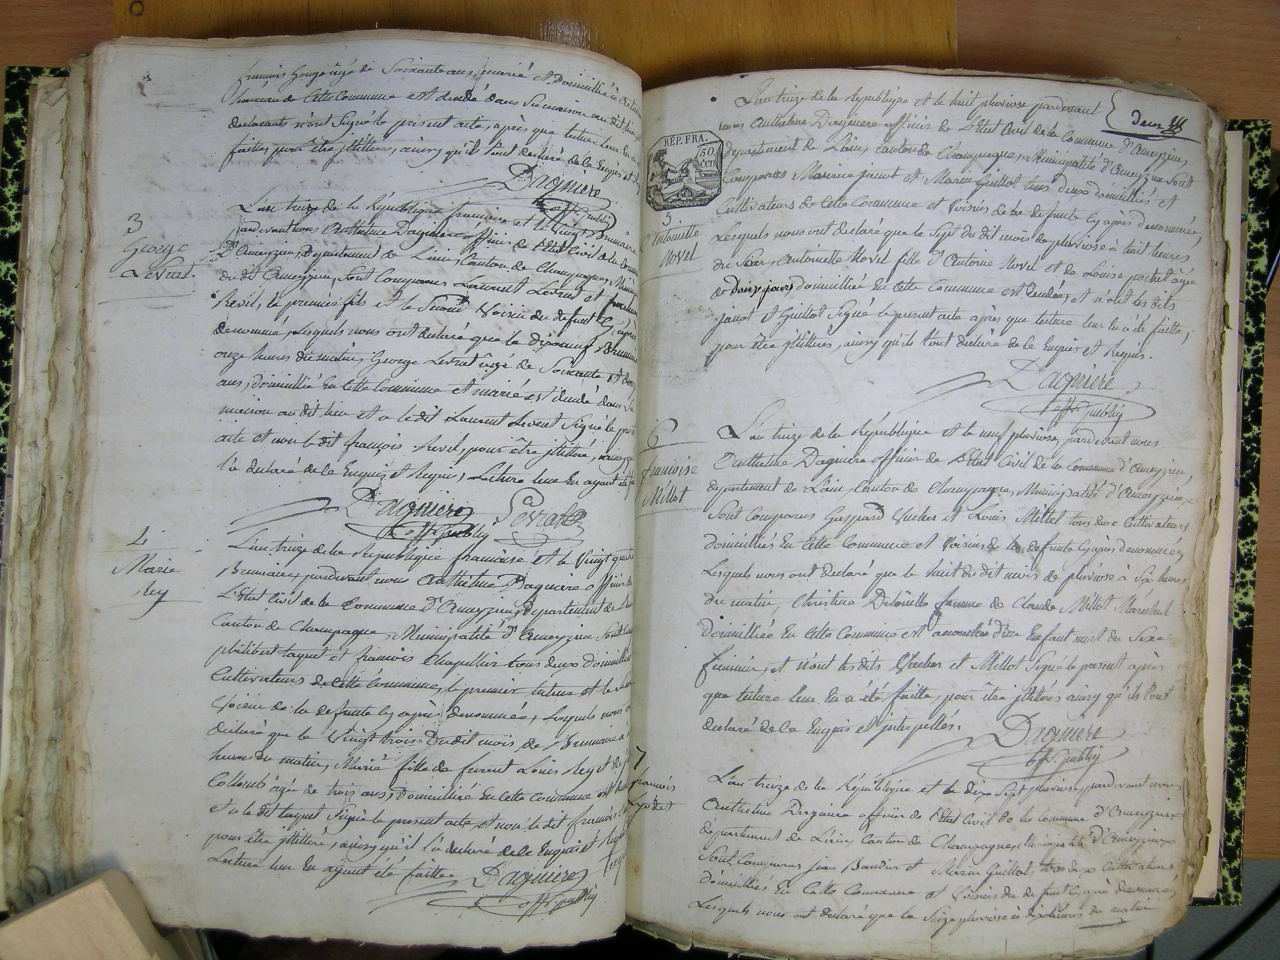 françois Gouge agé de Soixante ans, marié et Domicilié à
hameau de Cette Commune est decedé dans sa maison au dit lieu
declarants n'ont Signé le présent acte, après que lecture leur
faitte, pour être illitéres, ainsy qu'il l'ont declaré de la Enquis et
Dagniere
off. publiq
3
George
Levrat
L'an treize de la République françaisse et le vingt Brumaire
pardevant nous Anthelme Dagniere officier de l'Etat Civil de la Commune
D'Ameyzieu, Departement de Lain, Canton de Champagne,
du dit Ameyzieu, Sont Comparus Laurent Levrat et françois
Revil, le premier fils et le Second Voisin de defunt Cy après
denommé, Lesquels nous ont declaré que le dixneuf Brumaire
onze heures du matin, George Levrat agé de Soixante et
ans, domicillié en Cette Commune et marié est decedé dans Sa
maison au dit lieu et a le dit Laurent Levrat Signé le présent
acte et non le dit françois Revil, pour être illitéré,
l'a declaré de la Enquis et Requis, Lecture leur En ayant été
Dagniere Levrat
off. publiq
4
Marie
Rey
L'an treize de la République françaisse et le Vingt quatre
Brumaire, pardevant nous Anthelme Dagniere officier de
L'Etat Civil de la Commune D'Ameyzieu, Departement de Lain
Canton de Champagne, Municipalité d'Ameyzieu Sont
philibert taquet et françois Chapellier tous deux Domicilliés
Cultivateurs de Cette Commune, le premier tuteur et le Second
Voisin de la defunte Cy après denommée, Lesquels nous ont
declaré que le Vingt trois Du dit mois de Brumaire à
heure du matin, Marie fille de furent Louis Rey et de
Collomb agée de trois ans, domicilliée En Cette Commune est
et a le dit taquet Signé le present acte et non le dit françois
pour être illitéré, ainsy qu'il l'a declaré de la Enquis et Requis
Lecture leur En ayant été faitte
Dagniere
off. publiq
deux
RÉP. FRA.
50
CEN
5
Antoinette
Novel
L'an treize de la République et le huit pluviose pardevant
nous Anthelme Dagniere officier de l'Etat Civil de la Commune d'Ameyzieu,
departement de Lain, canton de Champagne, Municipalité d'Ameyzieu Sont
Comparus Maurice janot et Marin Guillot tous deux domicilliés et
Cultivateurs de Cette Commune et Voisins de la defunte Cy après denommée,
Lesquels nous ont declaré que le Sept du dit mois de pluviose à huit heures
du Soir, Antoinette Novel fille d'Antoine Novel et de Louise pochet agée
de Douze jours, domicilliée En Cette Commune est decedée, et n'ont les dits
janot et Guillot Signé le present acte après que lecture leur En a été faitte,
pour être illitéres, ainsy qu'ils l'ont declaré de la Enquis et Requis.
Dagniere
off. publiq
6
françoise
Millot
L'an treize de la République et le neuf pluviose, pardevant nous
Anthelme Dagniere officier de l'Etat Civil de la Commune d'Ameyzieu
departement de Lain, Canton de Champagne, Municipalité d'Ameyzieu,
Sont Comparus Gaspard et Louis Millot tous deux Cultivateurs
domicilliés En Cette Commune et Voisins de la defunte Cy après denommée
Lesquels nous ont declaré que le huit du dit mois de pluviose à Six heures
du matin, Christine femme de Claude Millot Maréchal
Domicilliée En Cette Commune est accouchée d'un Enfant mort du Sexe
feminin, et n'ont les dits et Millot Signé le present après
que lecture leur En a été faitte, pour être illitérés ainsy qu'ils l'ont
declaré de la Enquis et interpellés.
Dagniere
off. publiq
7
françois
L'an treize de la République et le dix Sept pluviose, pardevant nous
Anthelme Dagniere officier de l'Etat Civil de la Commune d'Ameyzieu
departement de Lain, Canton de Champagne, Municipalité d'Ameyzieu
Sont Comparus jean Baudin et Marin Guillot tous deux Cultivateurs
Domicilliés En Cette Commune et Voisins du defunt Cy après denommé
Lesquels nous ont declaré que le Seize pluviose à dix heures du matin